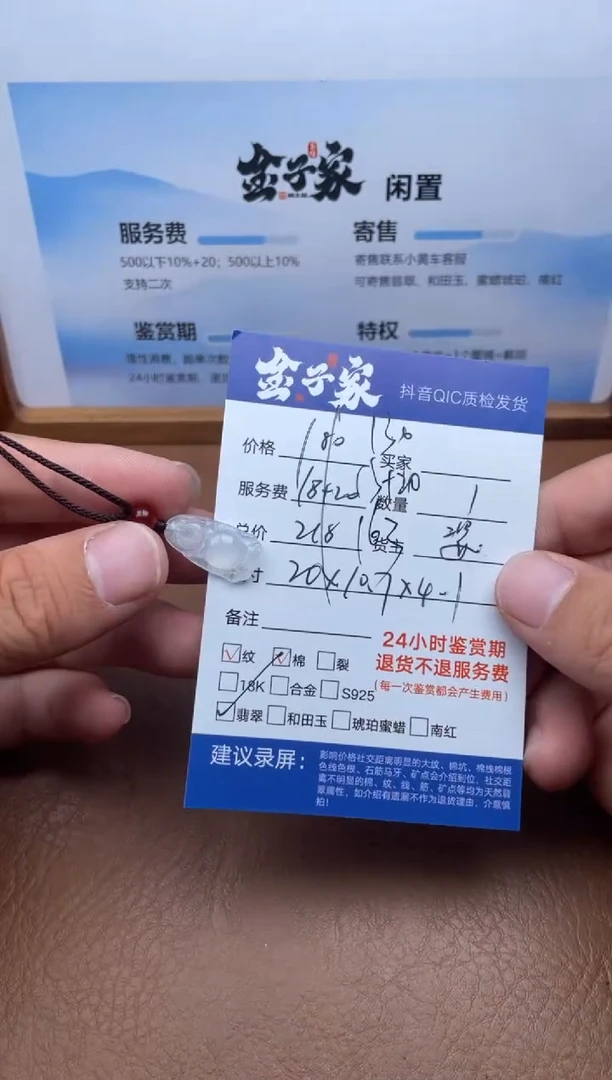 金子家 闲置
服务费
500以下10%+20；500以上10%
支持二次
寄售
寄售联系小黄车客服
可寄售翡翠、和田玉、蜜蜡琥珀、南红
鉴赏期
特权
金子家 抖音QIC质检发货
价格 180 150
买家
服务费 18+20
数量 1
总价 218 167
货主
寸 20×10.7×4.1
备注
24小时鉴赏期
退货不退服务费
(每一次鉴赏都会产生费用)
纹 棉 裂
18K 合金 S925
翡翠 和田玉 琥珀蜜蜡 南红
建议录屏：
影响价格社交距离明显的大纹、棉坑、棉线棉根
色线色根、石筋马牙、矿点会介绍到位，社交距
离不明显的棉、纹、线、筋、矿点等均为天然翡
翠属性，如介绍有遗漏不作为退货理由，介意慎
拍！